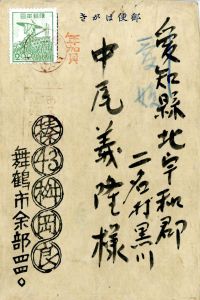 郵便はがき
日本郵便
年賀
愛知縣北宇和郡
愛媛
二名村黒川
中尾義隆様
舞鶴市余部四四〇